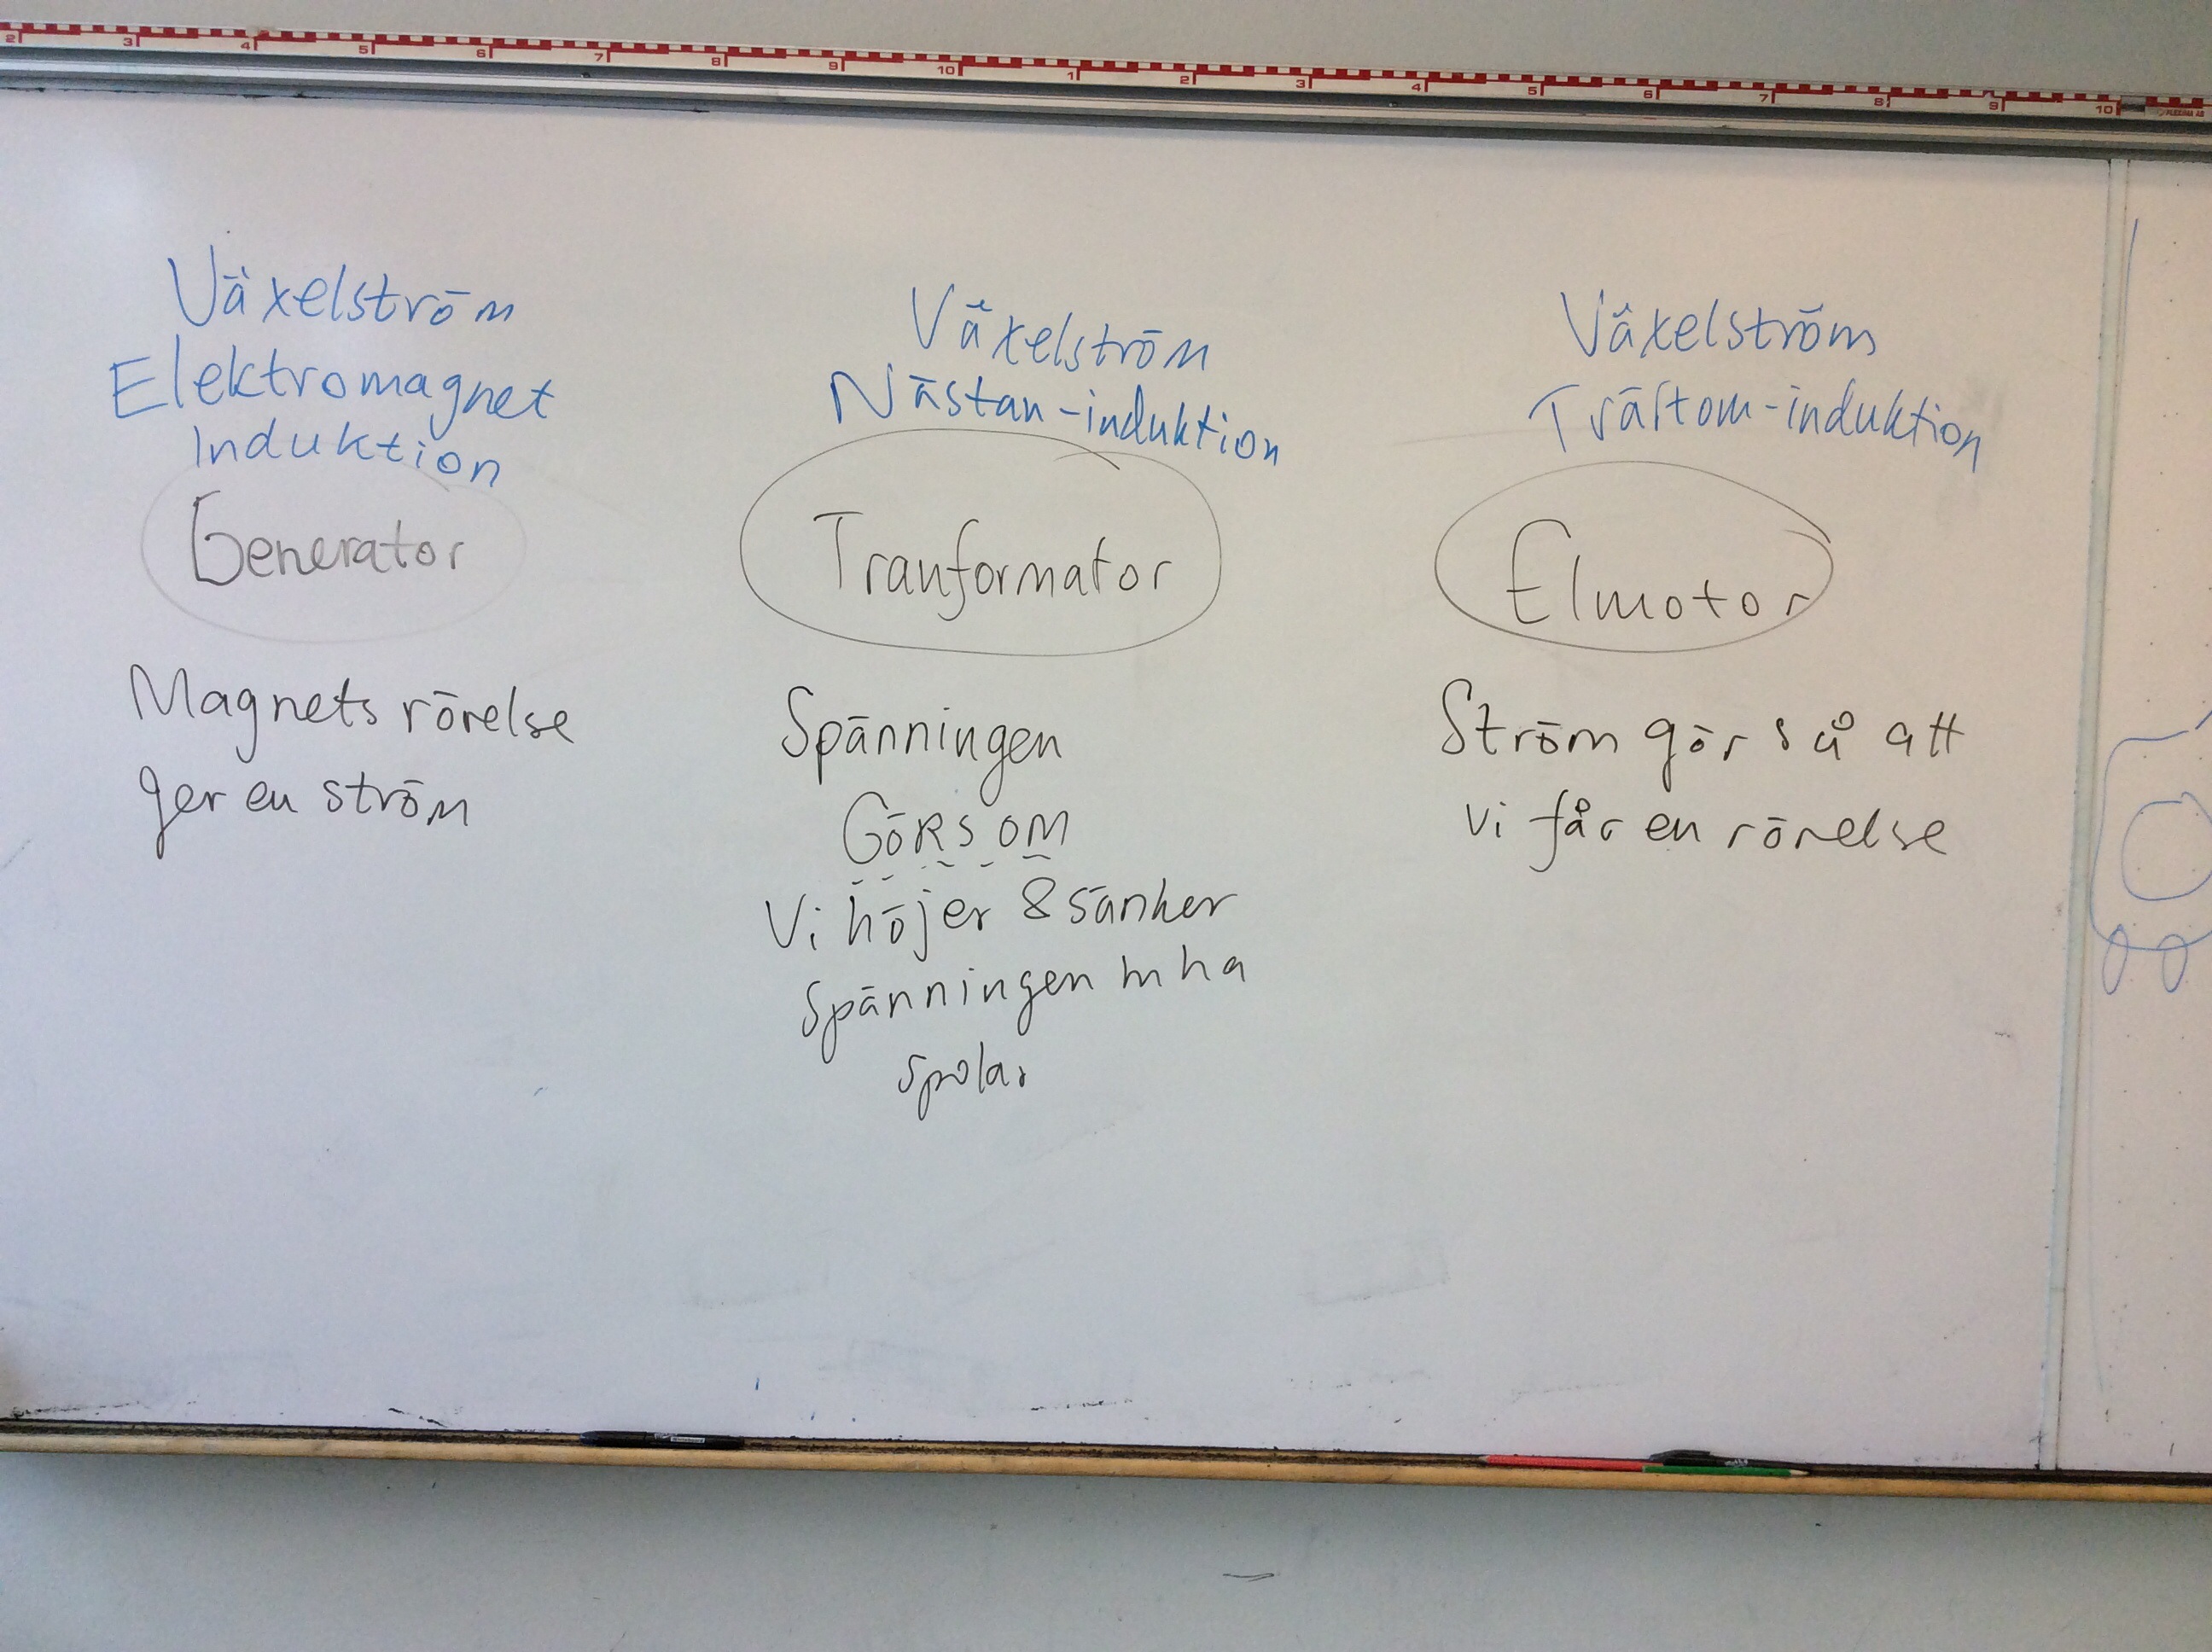 2 3 4 5 6 7 8 9 10 1 2 3 4 5 6 7 8 9 10
Växelström
Elektromagnet
Induktion
Generator
Magnets rörelse
ger en ström
Växelström
Nästan-induktion
Tranformator
Spänningen
Görs om
Vi höjer & sänker
Spänningen mha
spolar
Växelström
Tvärtom-induktion
Elmotor
Ström gör så att
vi får en rörelse